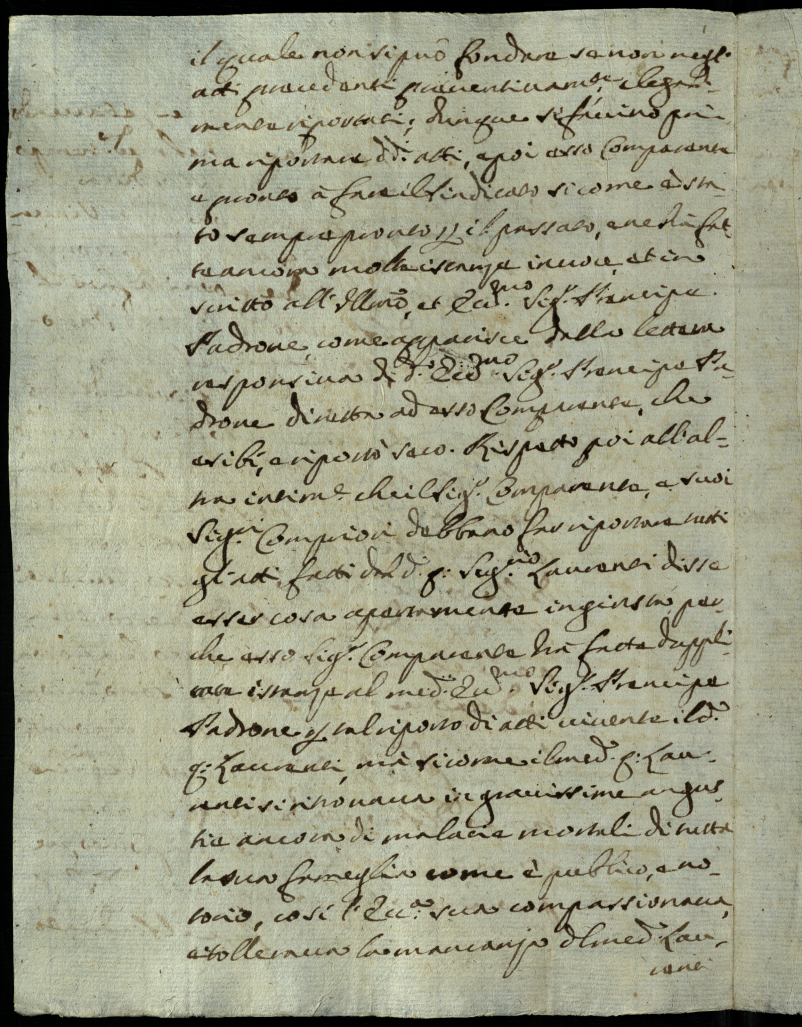 il quale non si può fondare se non negl'
atti precedenti preventivam.te, e legal-
mente riportati; dunque si faccino pri-
ma riportare dd.i atti, e poi esso Comparente
e pronto à fare il sindicato sicome è sta-
to sempre pronto p il passato, e ne hà fat-
te ancora molte istanze in voce, et in
scritto all' Illmo, et Ecc.mo Sig.r Prencipe
Padrone, come apparisce dalla lettera
responsiva di d.o Ecc.mo Sig.r Prencipe Pa-
drone diretta ad esso Comparente, che
esibì, e riportò seco. Rispetto poi all' al-
tra intim.e che il Sig.r Comparente, e suoi
Sig.ri Compriori debbano far riportare tutti
gl' atti fatti dal d. q: Sig.r Laurenti disse
esser cosa apertamente ingiusta per-
che esso Sig.r Comparente hà fatte duppli-
cate istanze al med.o Ecc.mo Sig.r Prencipe
Padrone p tal riporto di atti vivente il d.o
q: Laurenti, mà sicome il med.o q: Lau-
renti si ritrovava in gravissime angus-
tie ancora di malatie mortali di tutta
la sua fameglia come è publico, e no-
torio, così l' Ecc.a sua compassionava,
e tollerava la mancanza del med.o Lau-
renti